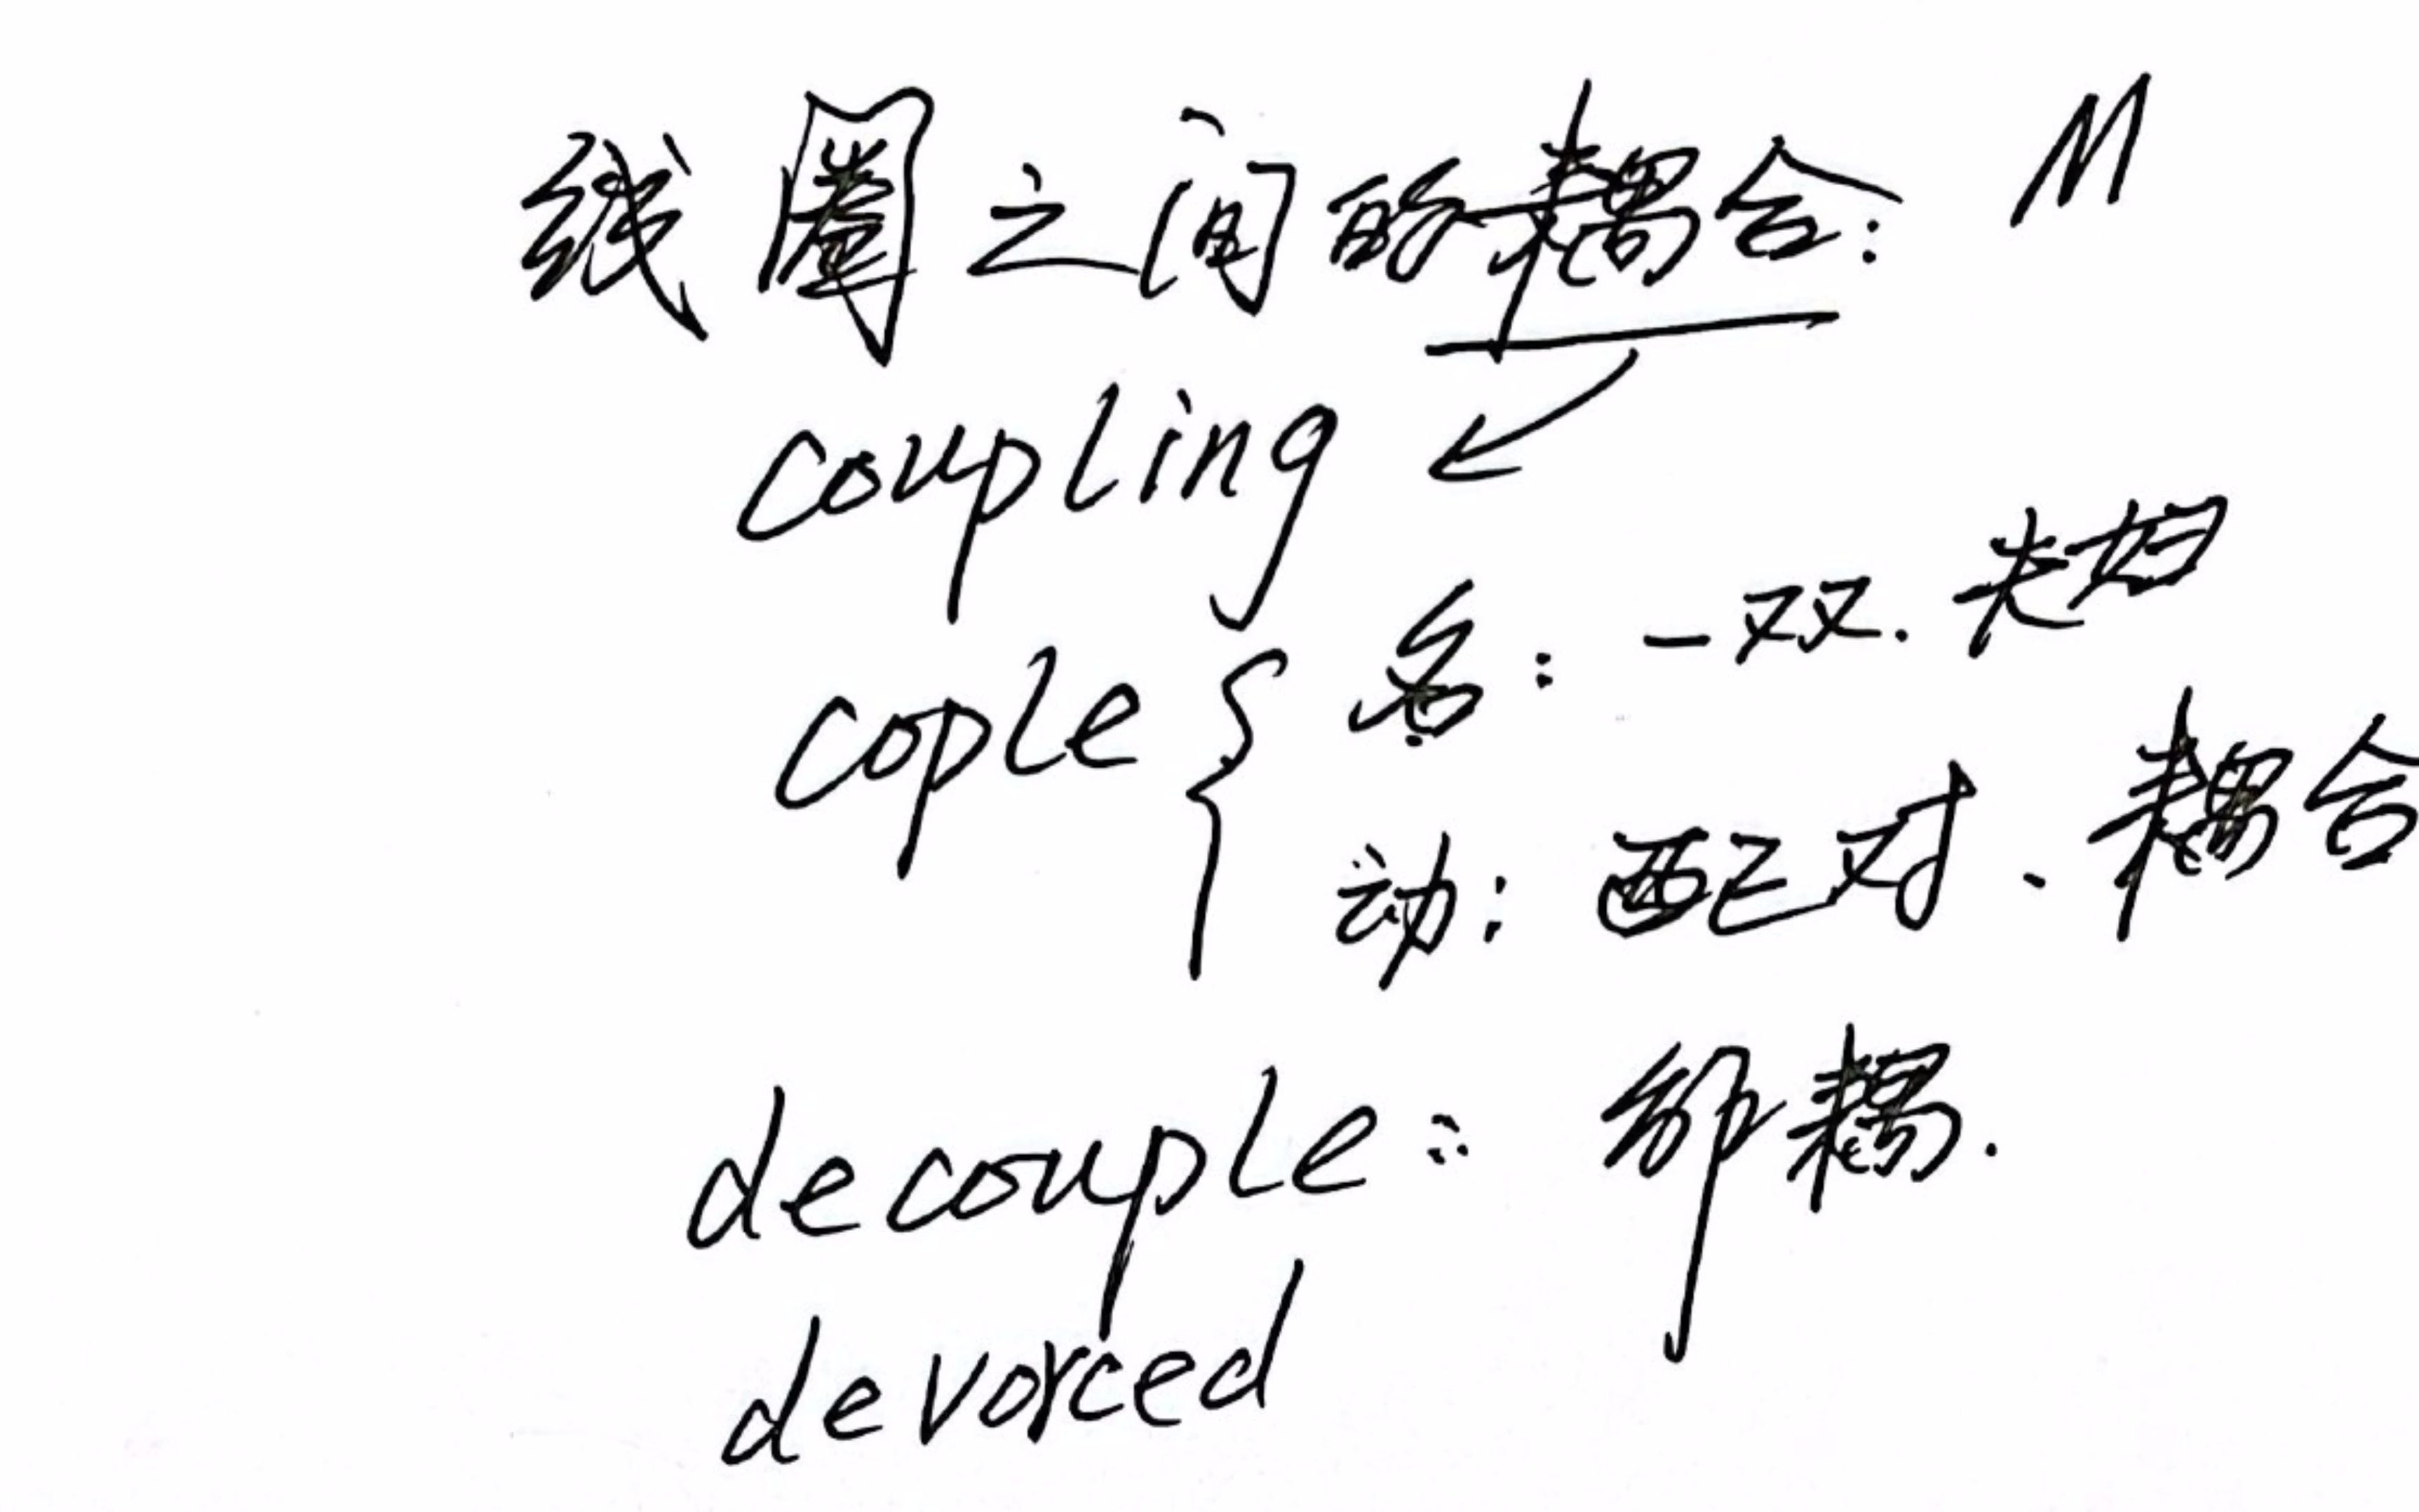 线圈之间的耦合: M
coupling
cople { 名: 一双. 夫妇
动: 配对、耦合
decouple: 解耦.
devorced